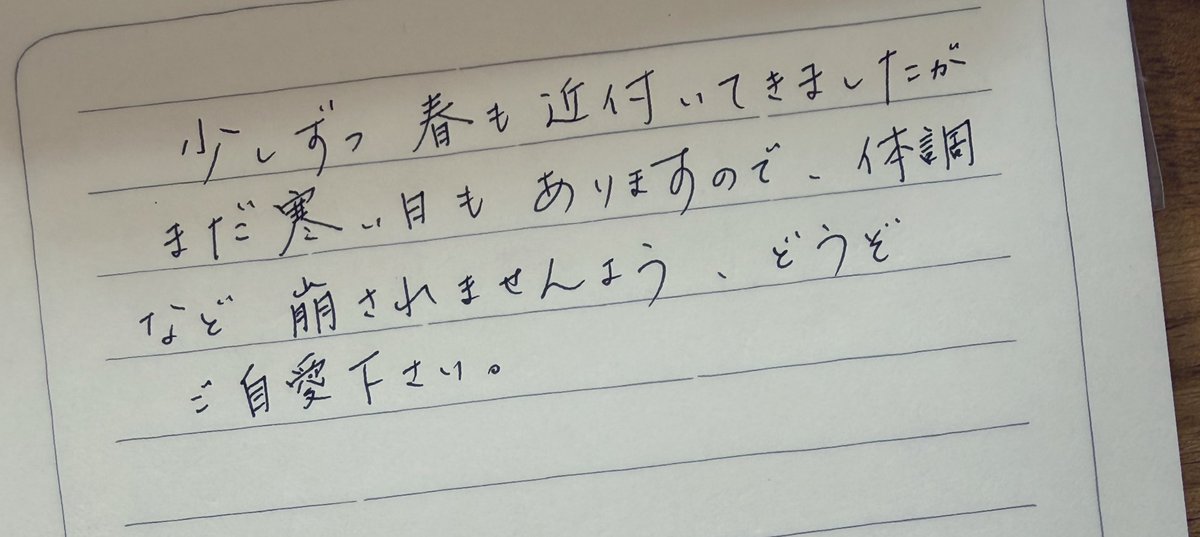 少しずつ 春も近付いてきましたが
まだ寒い日も ありますので、体調
など 崩されませんよう、どうぞ
ご自愛下さい。